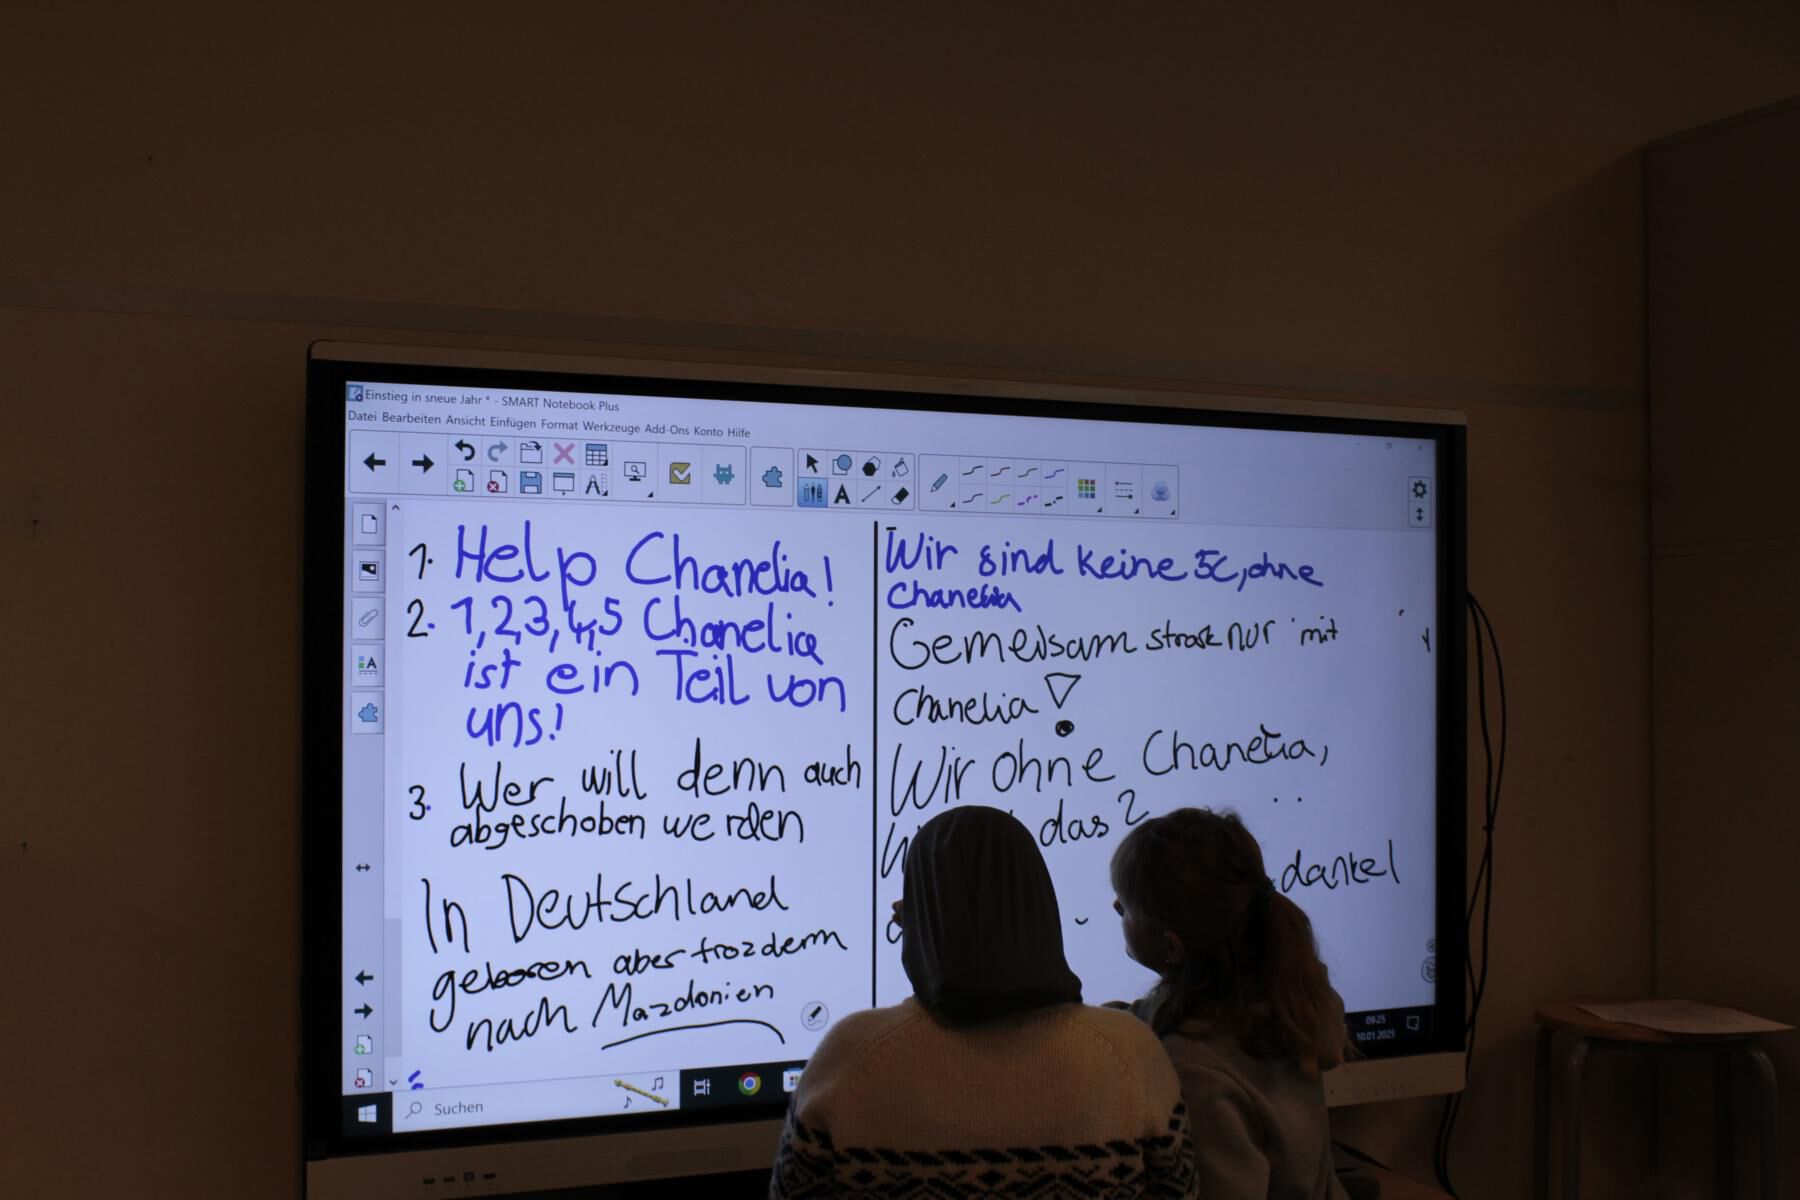 Einstieg in sneue Jahr * - SMART Notebook Plus
Datei Bearbeiten Ansicht Einfügen Format Werkzeuge Add-Ons Konto Hilfe
1. Help Chanelia!
2. 1,2,3,4,5 Chanelia
ist ein Teil von
uns!
3. Wer will denn auch
abgeschoben werden
In Deutschland
geboren aber trozdem
nach Mazdonien
Wir sind keine 5c, ohne
Chanelia
Gemeisam strark nur mit
Chanelia
Wir ohne Chanelia,
das?
dankel
Suchen
09:25
10.01.2025